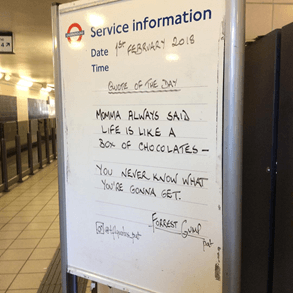 Service information
Date 1ST FEBRUARY 2018
Time
QUOTE OF THE DAY
MOMMA ALWAYS SAID
LIFE IS LIKE A
BOX OF CHOCOLATES -
YOU NEVER KNOW WHAT
YOU'RE GONNA GET.
FORREST GUMP